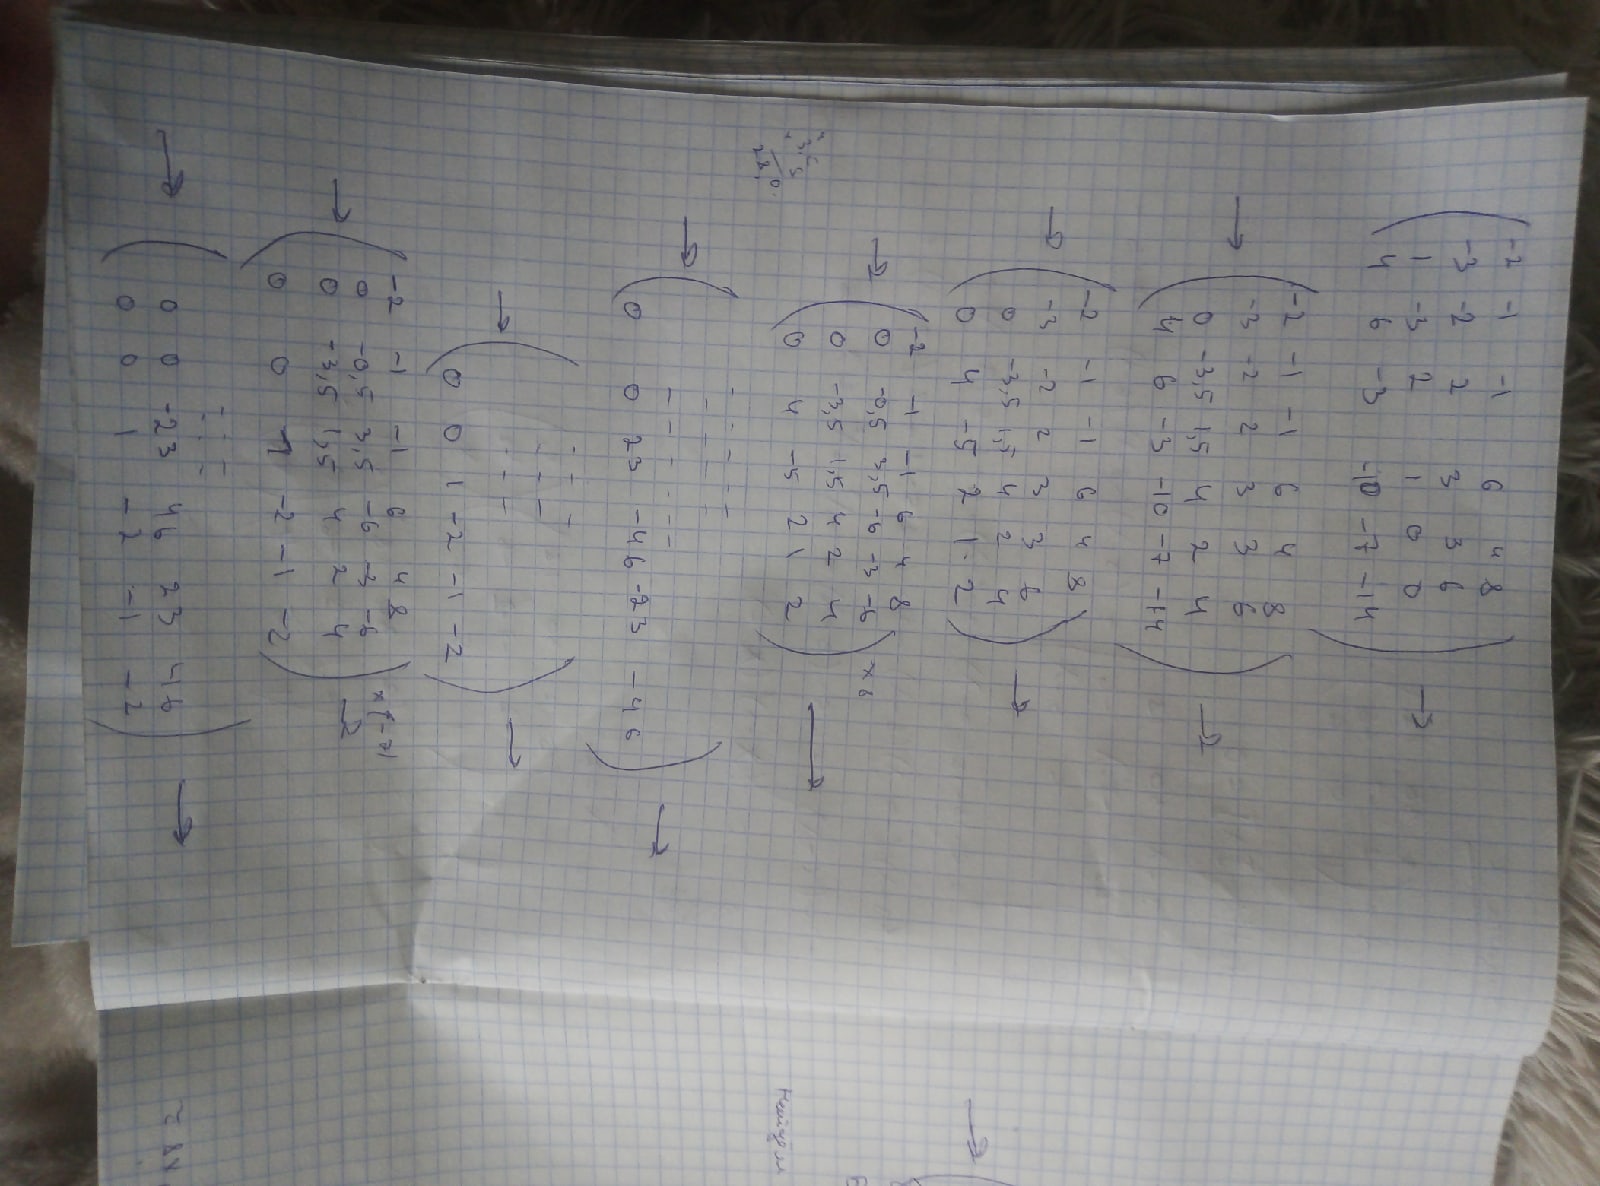 -2 -1 -1 6 4 8
-3 -2 2 3 3 6
1 -3 2 1 0 0
4 6 -3 -10 -7 -14
-2 -1 -1 6 4 8
-3 -2 2 3 3 6
0 -3,5 1,5 4 2 4
4 6 -3 -10 -7 -14
-2 -1 -1 6 4 8
-3 -2 2 3 3 6
0 -3,5 1,5 4 2 4
0 4 -5 2 1 2
-2 -1 -1 6 4 8
0 -0,5 3,5 -6 -3 -6
0 -3,5 1,5 4 2 4
0 4 -5 2 1 2
0 0 23 -46 -23 -46
0 0 1 -2 -1 -2
-2 -1 -1 6 4 8
0 -0,5 3,5 -6 -3 -6
0 -3,5 1,5 4 2 4
0 0 1 -2 -1 -2
0 0 -23 46 23 46
0 0 1 -2 -1 -2